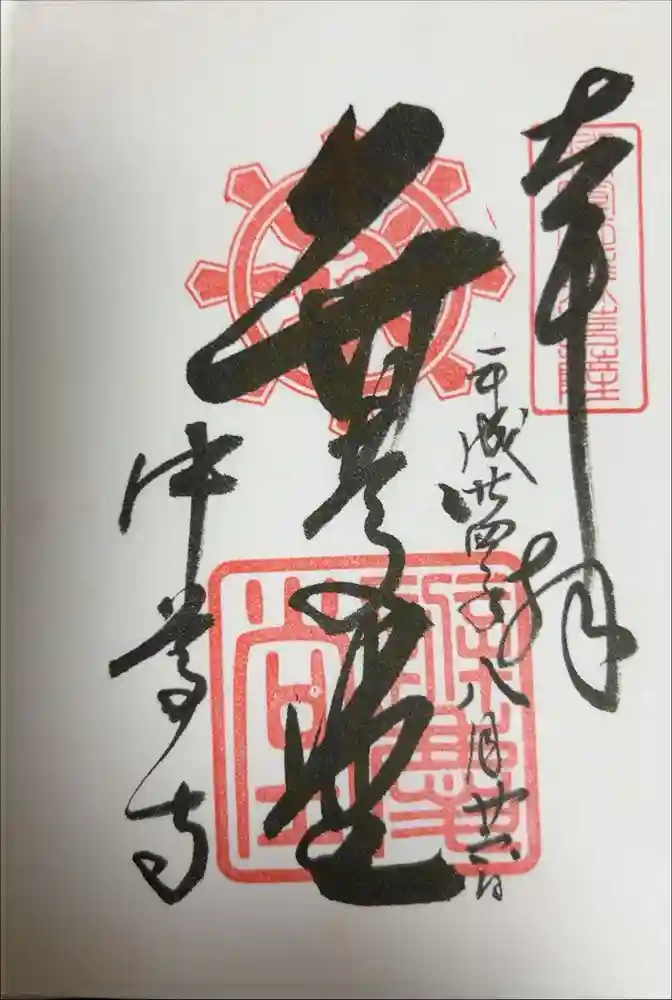 奉拝
平成廿四年八月廿六日
弁慶堂
中尊寺